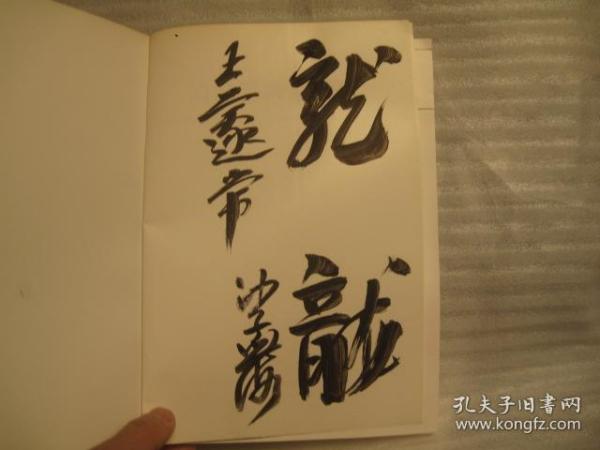 龍
王蘧常
龍
沙孟海
孔夫子旧書网
www.kongfz.com